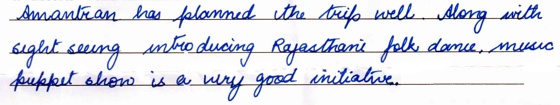 Amantran has planned the trip well. Along with
sight seeing introducing Rajasthani folk dance, music
puppet show is a very good initiative.